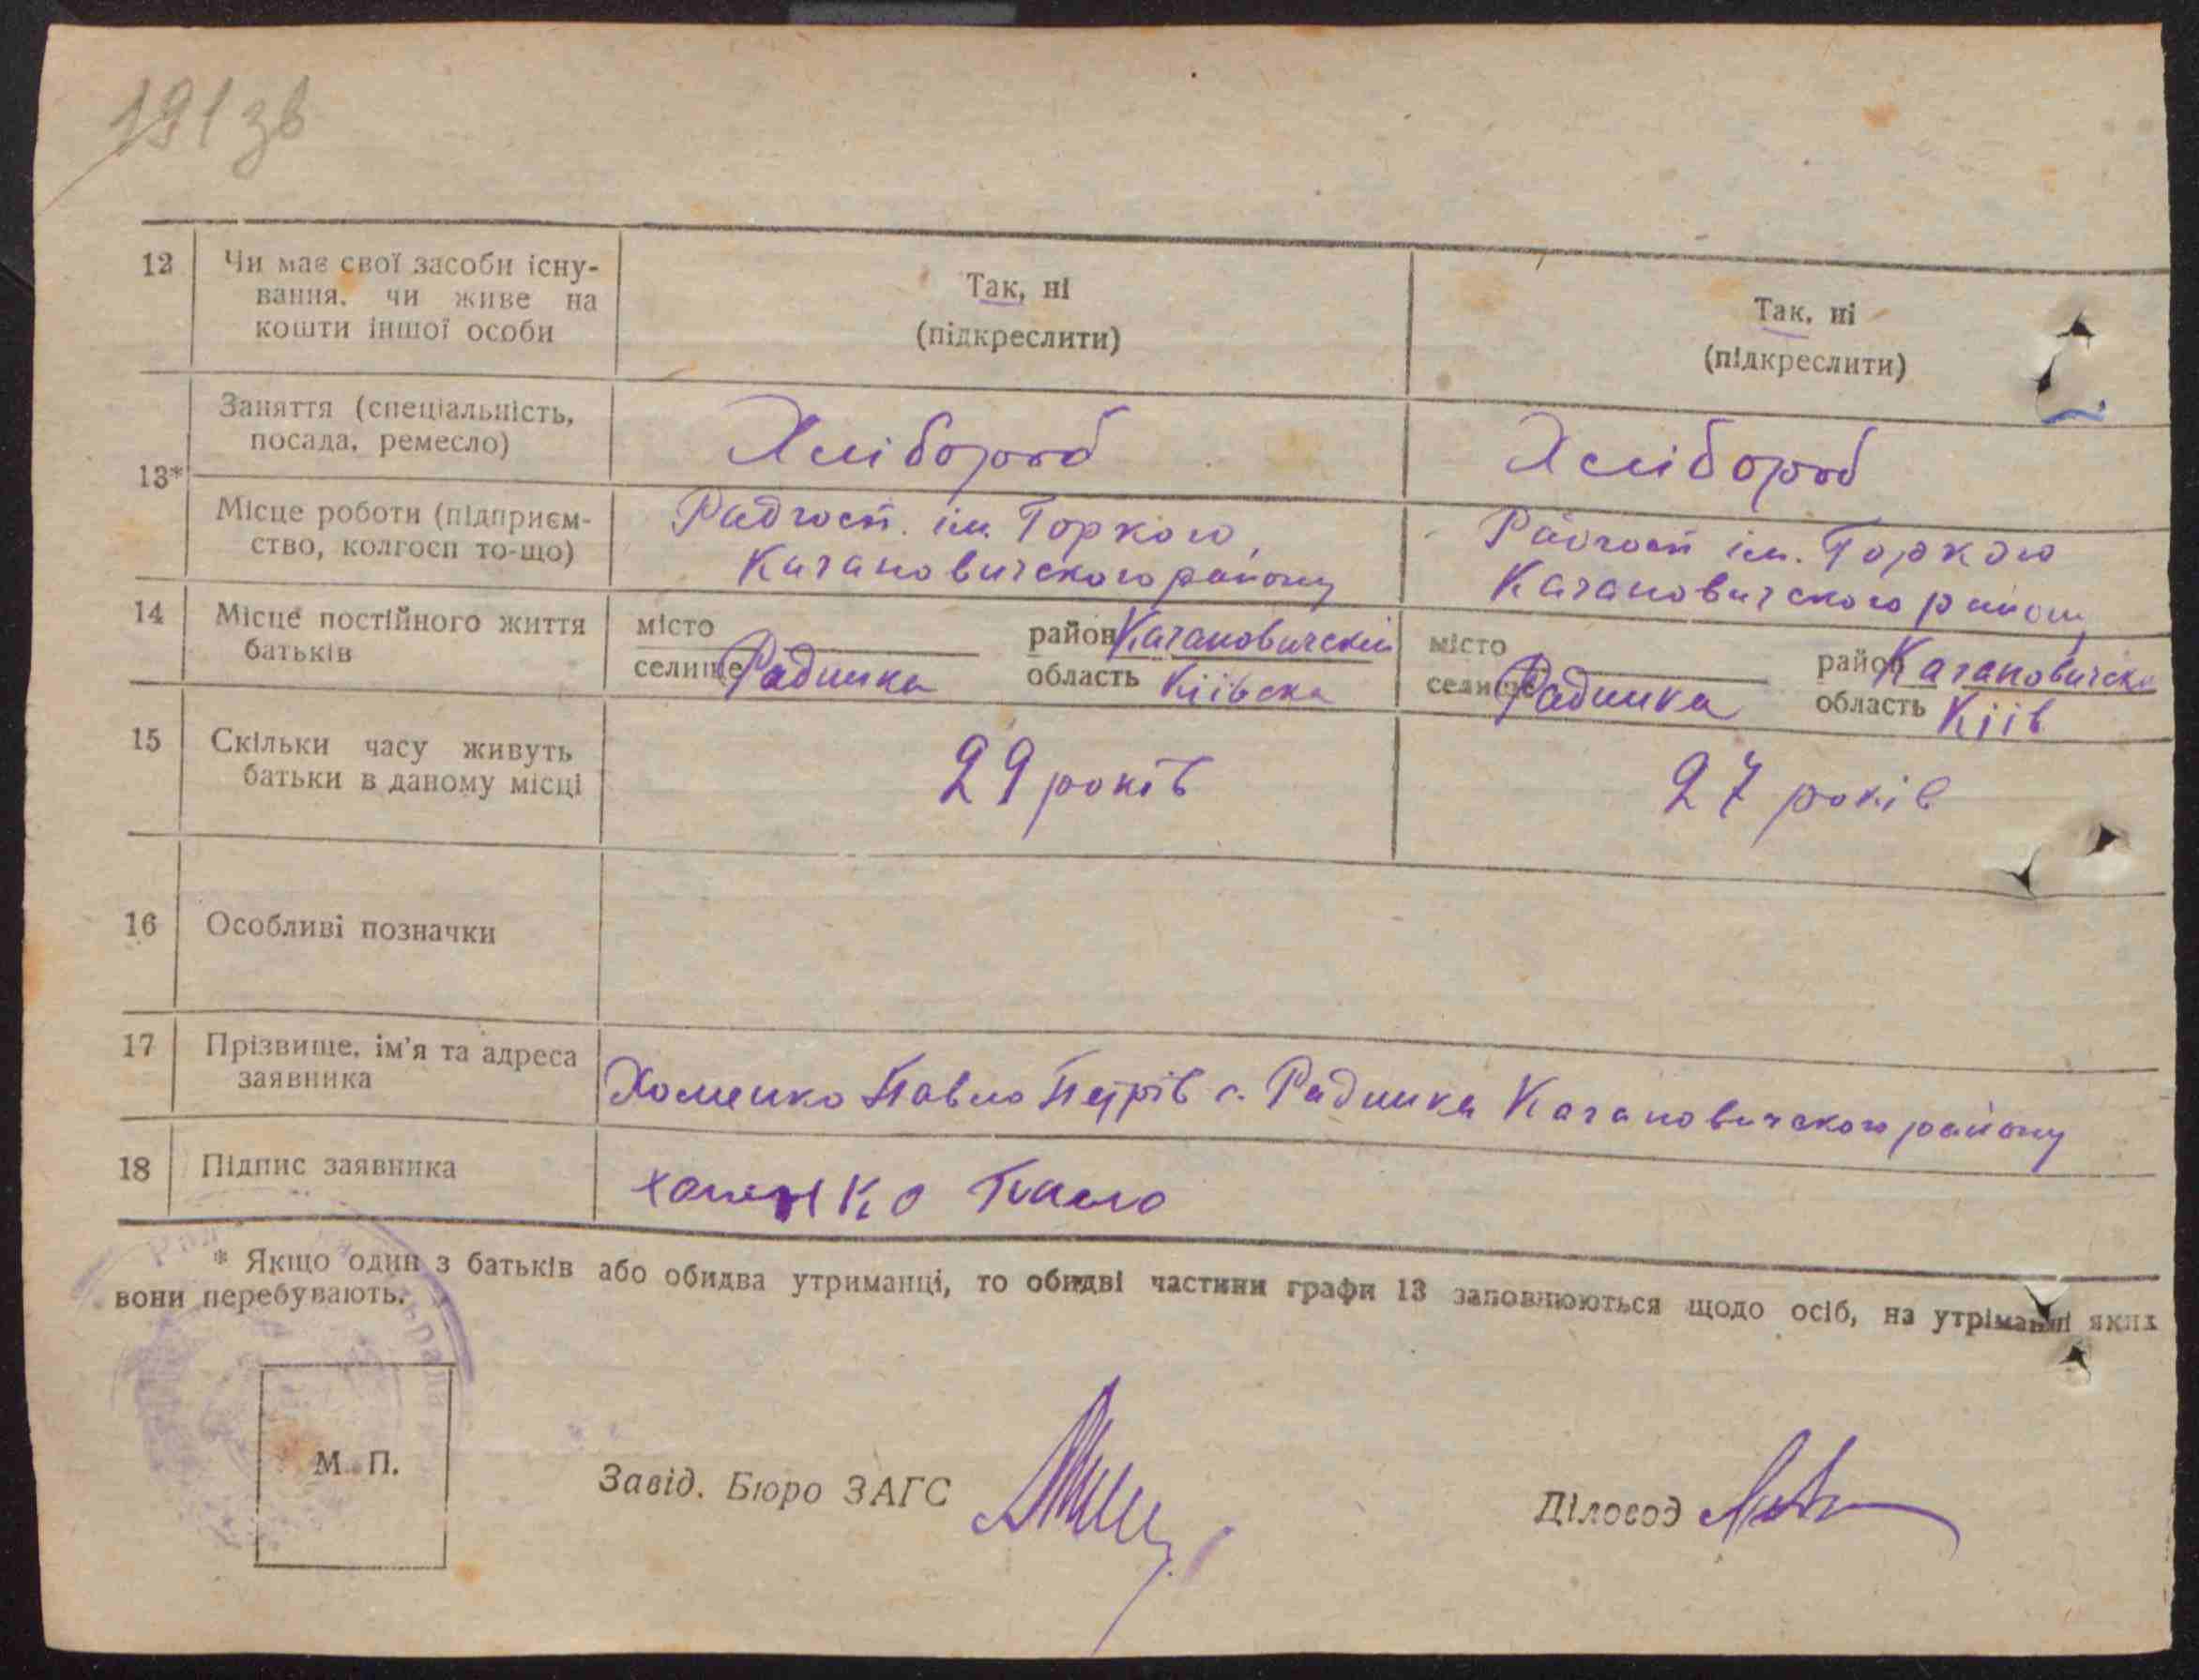 191 зв
12 Чи має свої засоби існу-
вання, чи живе на
кошти іншої особи
Так, ні
(підкреслити)
Так, ні
(підкреслити)
13*
Заняття (спеціальність,
посада, ремесло)
Хлібороб
Хлібороб
Місце роботи (підприєм-
ство, колгосп то-що)
Радгосп. ім. Горкого,
Кагановичского району
Радгосп ім. Горкого
Кагановичского району
14 Місце постійного життя
батьків
місто
селище Радинка
район Кагановичский
область Київска
місто
селище Радинка
район Кагановичски
область Київ
15 Скільки часу живуть
батьки в даному місці
29 років
27 років
16 Особливі позначки
17 Прізвище, ім'я та адреса
заявника
Хоменко Павло Петрів с. Радинка Кагановичского району
18 Підпис заявника
Хоменко Павло
* Якщо один з батьків або обидва утриманці, то обидві частини графи 13 заповнюються щодо осіб, на утріманні яких
вони перебувають.
М. П.
Завід. Бюро ЗАГС
Діловод